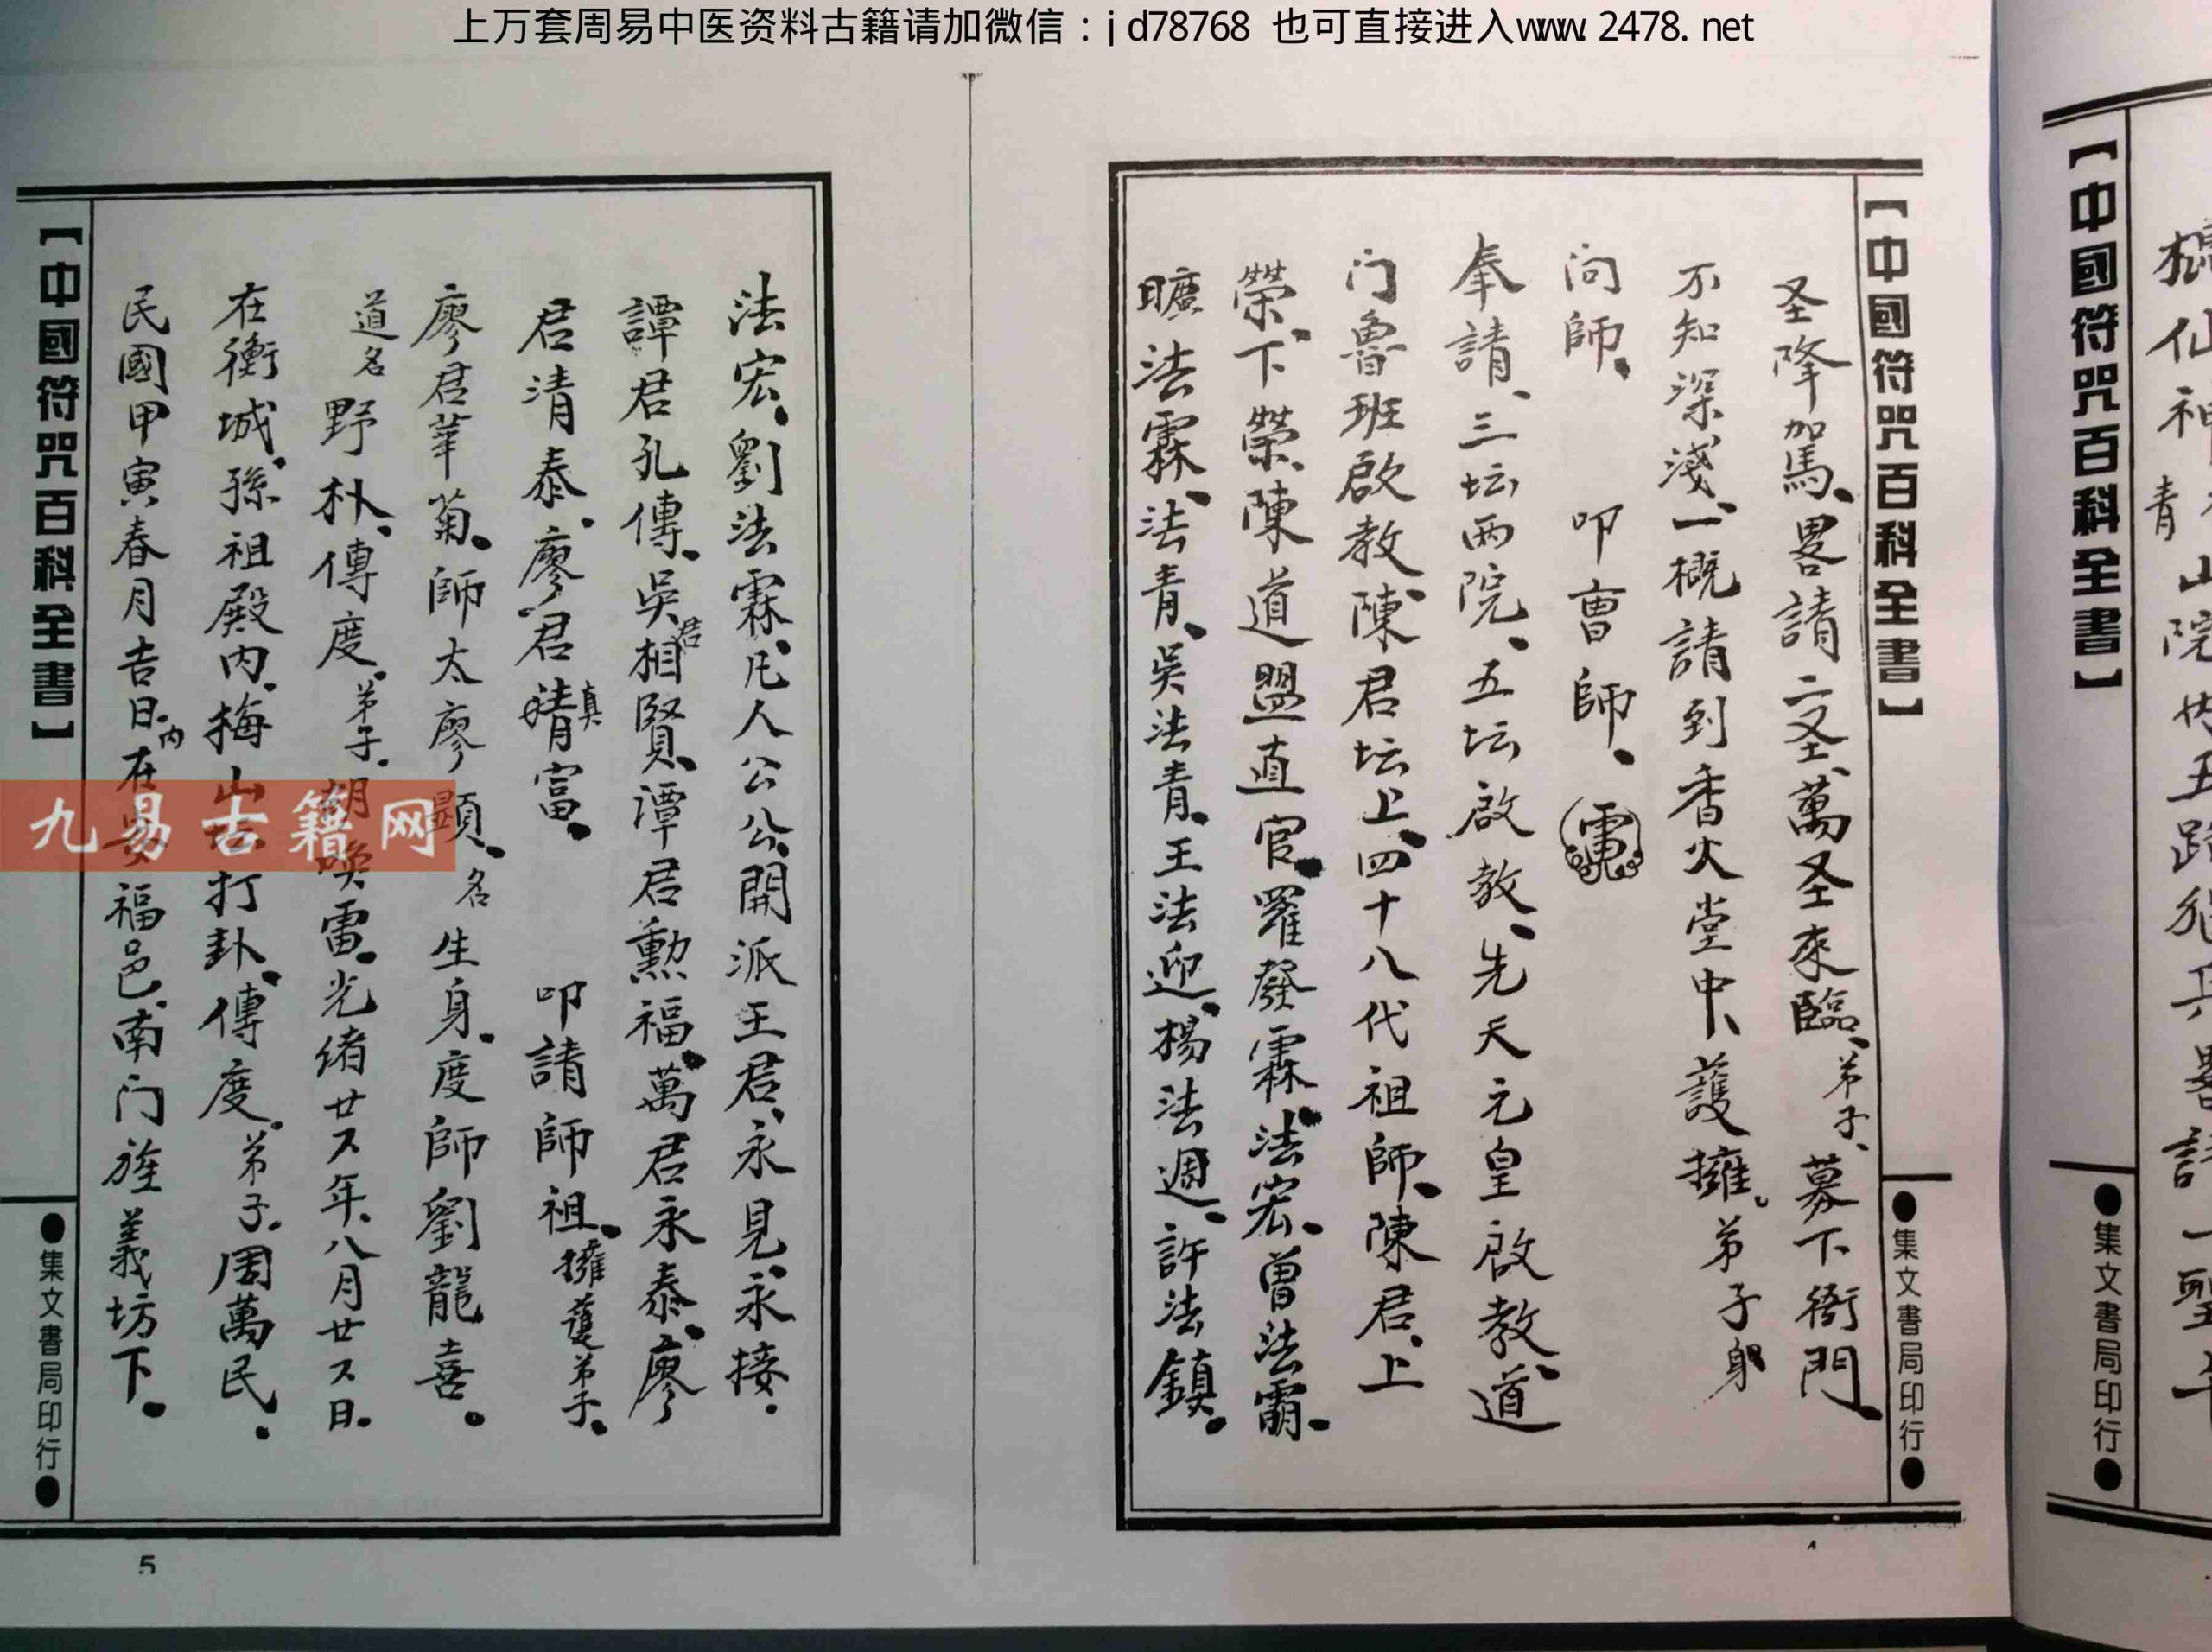 上万套周易中医资料古籍请加微信：jd78768 也可直接进入www.2478.net
【中國符咒百科全書】
●集文書局印行●
【中國符咒百科全書】
●集文書局印行●
圣降加馬、畧請二圣、萬圣來臨、弟子、募下衙門、
不知深淺、一概請到香火堂中、護擁。弟子身
问師。 叩曺師。
奉請、三坛兩院、五坛啟教、先天元皇啟教、道
门魯班啟教、陳君坛上、四十八代祖師、陳君、上
榮、下榮、陳道盟直官、羅發霖、法宏、曾法霸、
曠法霖、法青、吳法青、王法迎、楊法週、許法鎮。
4
法宏、劉法霖、凡人公公、開派王君、永見、永接。
譚君孔傳、吳君相賢、譚君勳福、萬君永泰、廖
君清泰、廖君真富。 叩請師祖、擁護弟子。
廖君華菊。師太廖顯、名生身。度師劉龍喜。
道名野朴、傳度。弟子。胡喚雷。光緒廿又年、八月廿又日。
在衡城、孫祖殿内、梅山坛打卦、傳度。弟子。周萬民。
民國甲寅春月吉日。内在安福邑、南门旌義坊下。
【中國符咒百科全書】
●集文書局印行●
5
九易古籍网